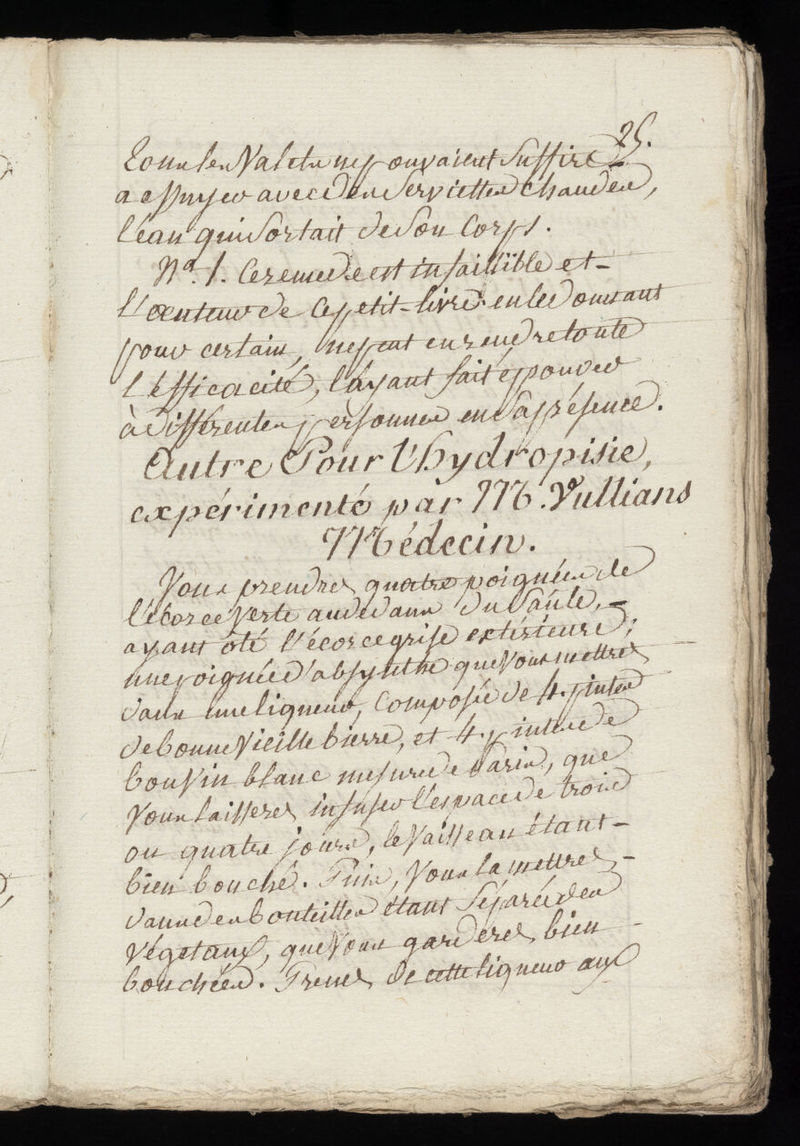 25.
tous les Valets ne pouvaient Suffire
a essuyer avec des Serviettes chaudes,
l'eau qui Sortait de Son Corps.
Na. 1. Ce remede est infaillible et
l'auteur de Ce petit-livre en le donnant
pour certain, ne peut en rendre toute
l'éfficacité, l'ayant fait éprouver
à différentes personnes en Sa présence.
Autre Pour l'hydropisie,
expérimenté par M. Vullians
Médecin.
Vous prendres quatre poignées de
l'écorce Verte au dedans du Saule,
ayant ôté l'écorce grise extérieure;
une poignée d'absynthe que Vous mettres
dans une liqueur, Composée de 4. pintes
de bonne Vieille bierre, et 4. pintes de
bon Vin blanc mesure de Paris, que
Vous laisseres infuser l'espace de trois
ou quatre jours, le Vaisseau étant
bien bouché. Puis, Vous la mettres
dans des bouteilles étant Séparée des
Végetaux, que Vous garderes bien
bouchées. Prenes de cette liqueur aux